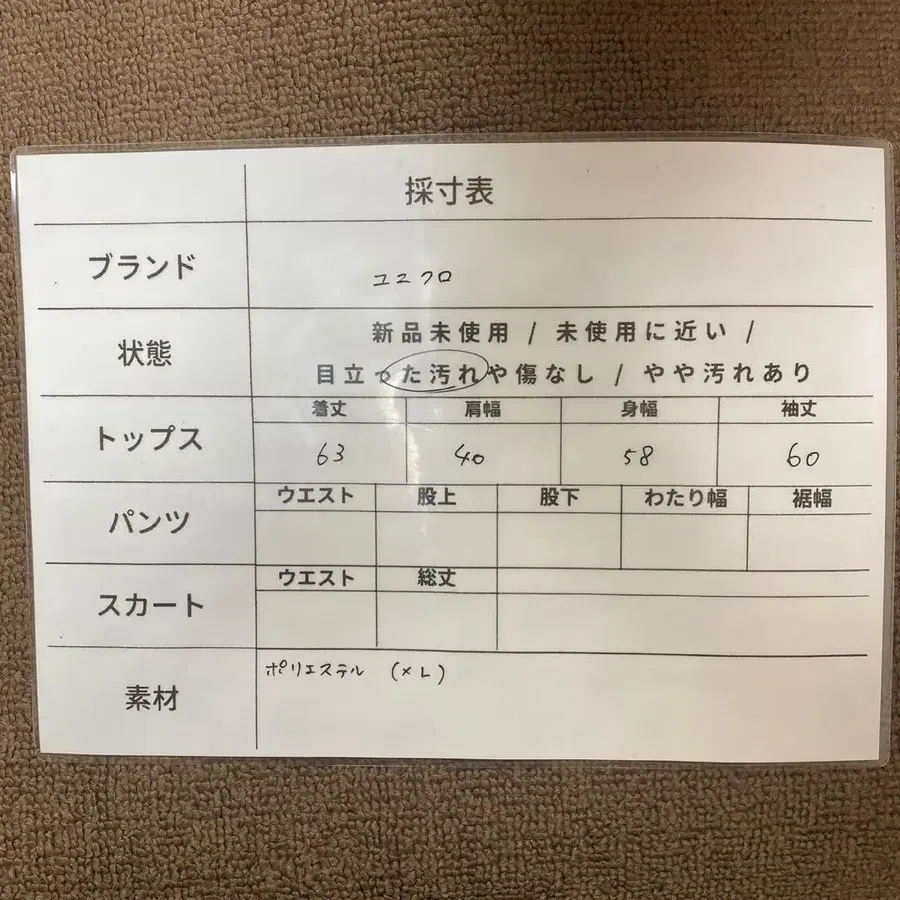 採寸表
ブランド ユニクロ
状態 新品未使用 / 未使用に近い /
目立った汚れや傷なし / やや汚れあり
トップス 着丈 肩幅 身幅 袖丈
63 40 58 60
パンツ ウエスト 股上 股下 わたり幅 裾幅
スカート ウエスト 総丈
素材 ポリエステル (XL)